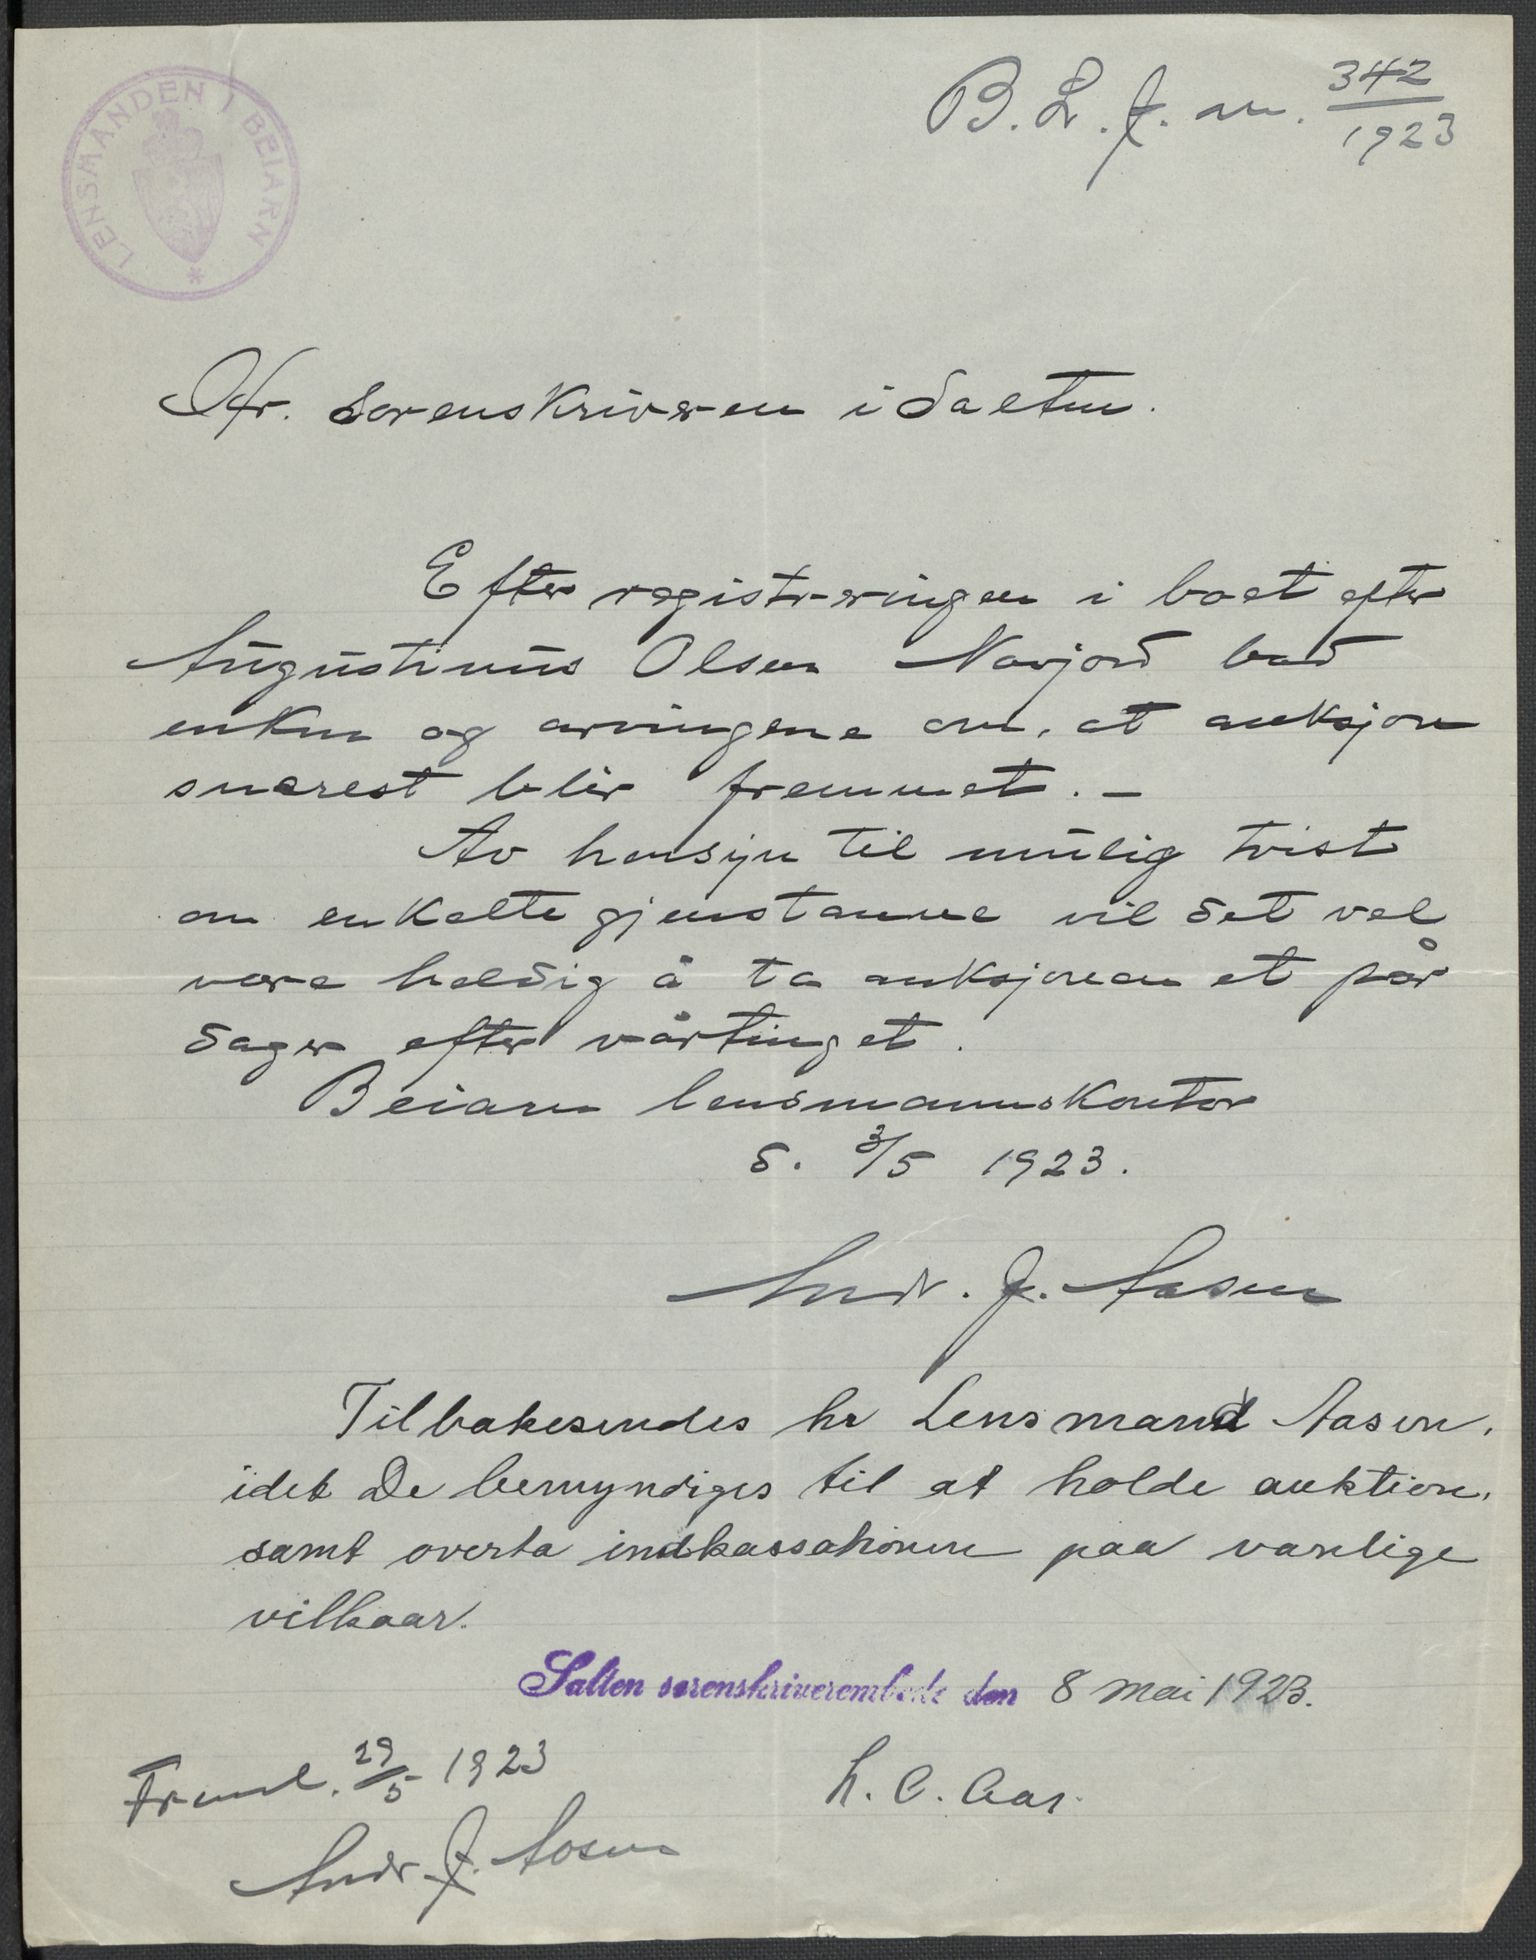 LENSMANDEN I BEIARN *
B. L. J. nr. 342/1923
Hr. Sorenskriveren i Salten.
Efter registreringen i boet efter
Augustinus Olsen Navjord bad
enken og arvingene om, at auksjon
snarest blir fremmet. —
Av hensyn til mulig tvist
om enkelte gjenstanne vil det vel
være heldig å ta auksjonen et par
dager efter vårtinget.
Beiarn lensmannskontor
d. 3/5 1923.
Andr. J. Aasen
Tilbakesendes hr Lensmand Aasen,
idet De bemyndiges til at holde auktion,
samt overta indkassationen paa vanlige
vilkaar.
Salten sorenskriverembede den 8 mai 1923.
Freml. 29/5 1923
L. C. Aas.
Andr. J. Aasen